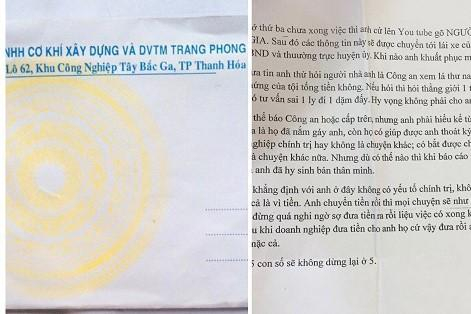 NHH CƠ KHÍ XÂY DỰNG VÀ DVTM TRANG PHONG
Lô 62, Khu Công Nghiệp Tây Bắc Ga, TP Thanh Hóa
ở thứ ba chưa xong việc thì anh cứ lên You tube gõ NGƯỜ
GIA. Sau đó các thông tin này sẽ được chuyển tới lái xe củ
BND và thường trực huyện ủy. Khi nào anh khuất phục m
ưa tin anh thử hỏi người nhà anh là Công an xem lá thư na
ứng của tội tống tiền không. Nếu hỏi thì hỏi thằng giỏi 1 t
ó tư vấn sai 1 ly đi 1 dặm đấy. Hy vọng không phải cho an
thể báo Công an hoặc cấp trên, nhưng anh phải hiểu kẻ từ
a là họ đã nắm gáy anh, còn họ có giúp được anh thoát ký
nghiệp chính trị hay không là chuyện khác; có bắt được ch
à chuyện khác nữa. Nhưng dù có thế nào thì khi báo cáo
anh đã hy sinh bản thân mình.
khẳng định với anh ở đây không có yếu tố chính trị, khô
cả là vì tiền. Anh chuyển tiền rồi thì mọi chuyện sẽ như
đừng quá nghi ngờ sợ đưa tiền ra rồi liệu việc có xong k
u khi doanh nghiệp đưa tiền cho anh họ cứ vậy đưa rồi a
mặc cả.
5 con số sẽ không dừng lại ở 5.